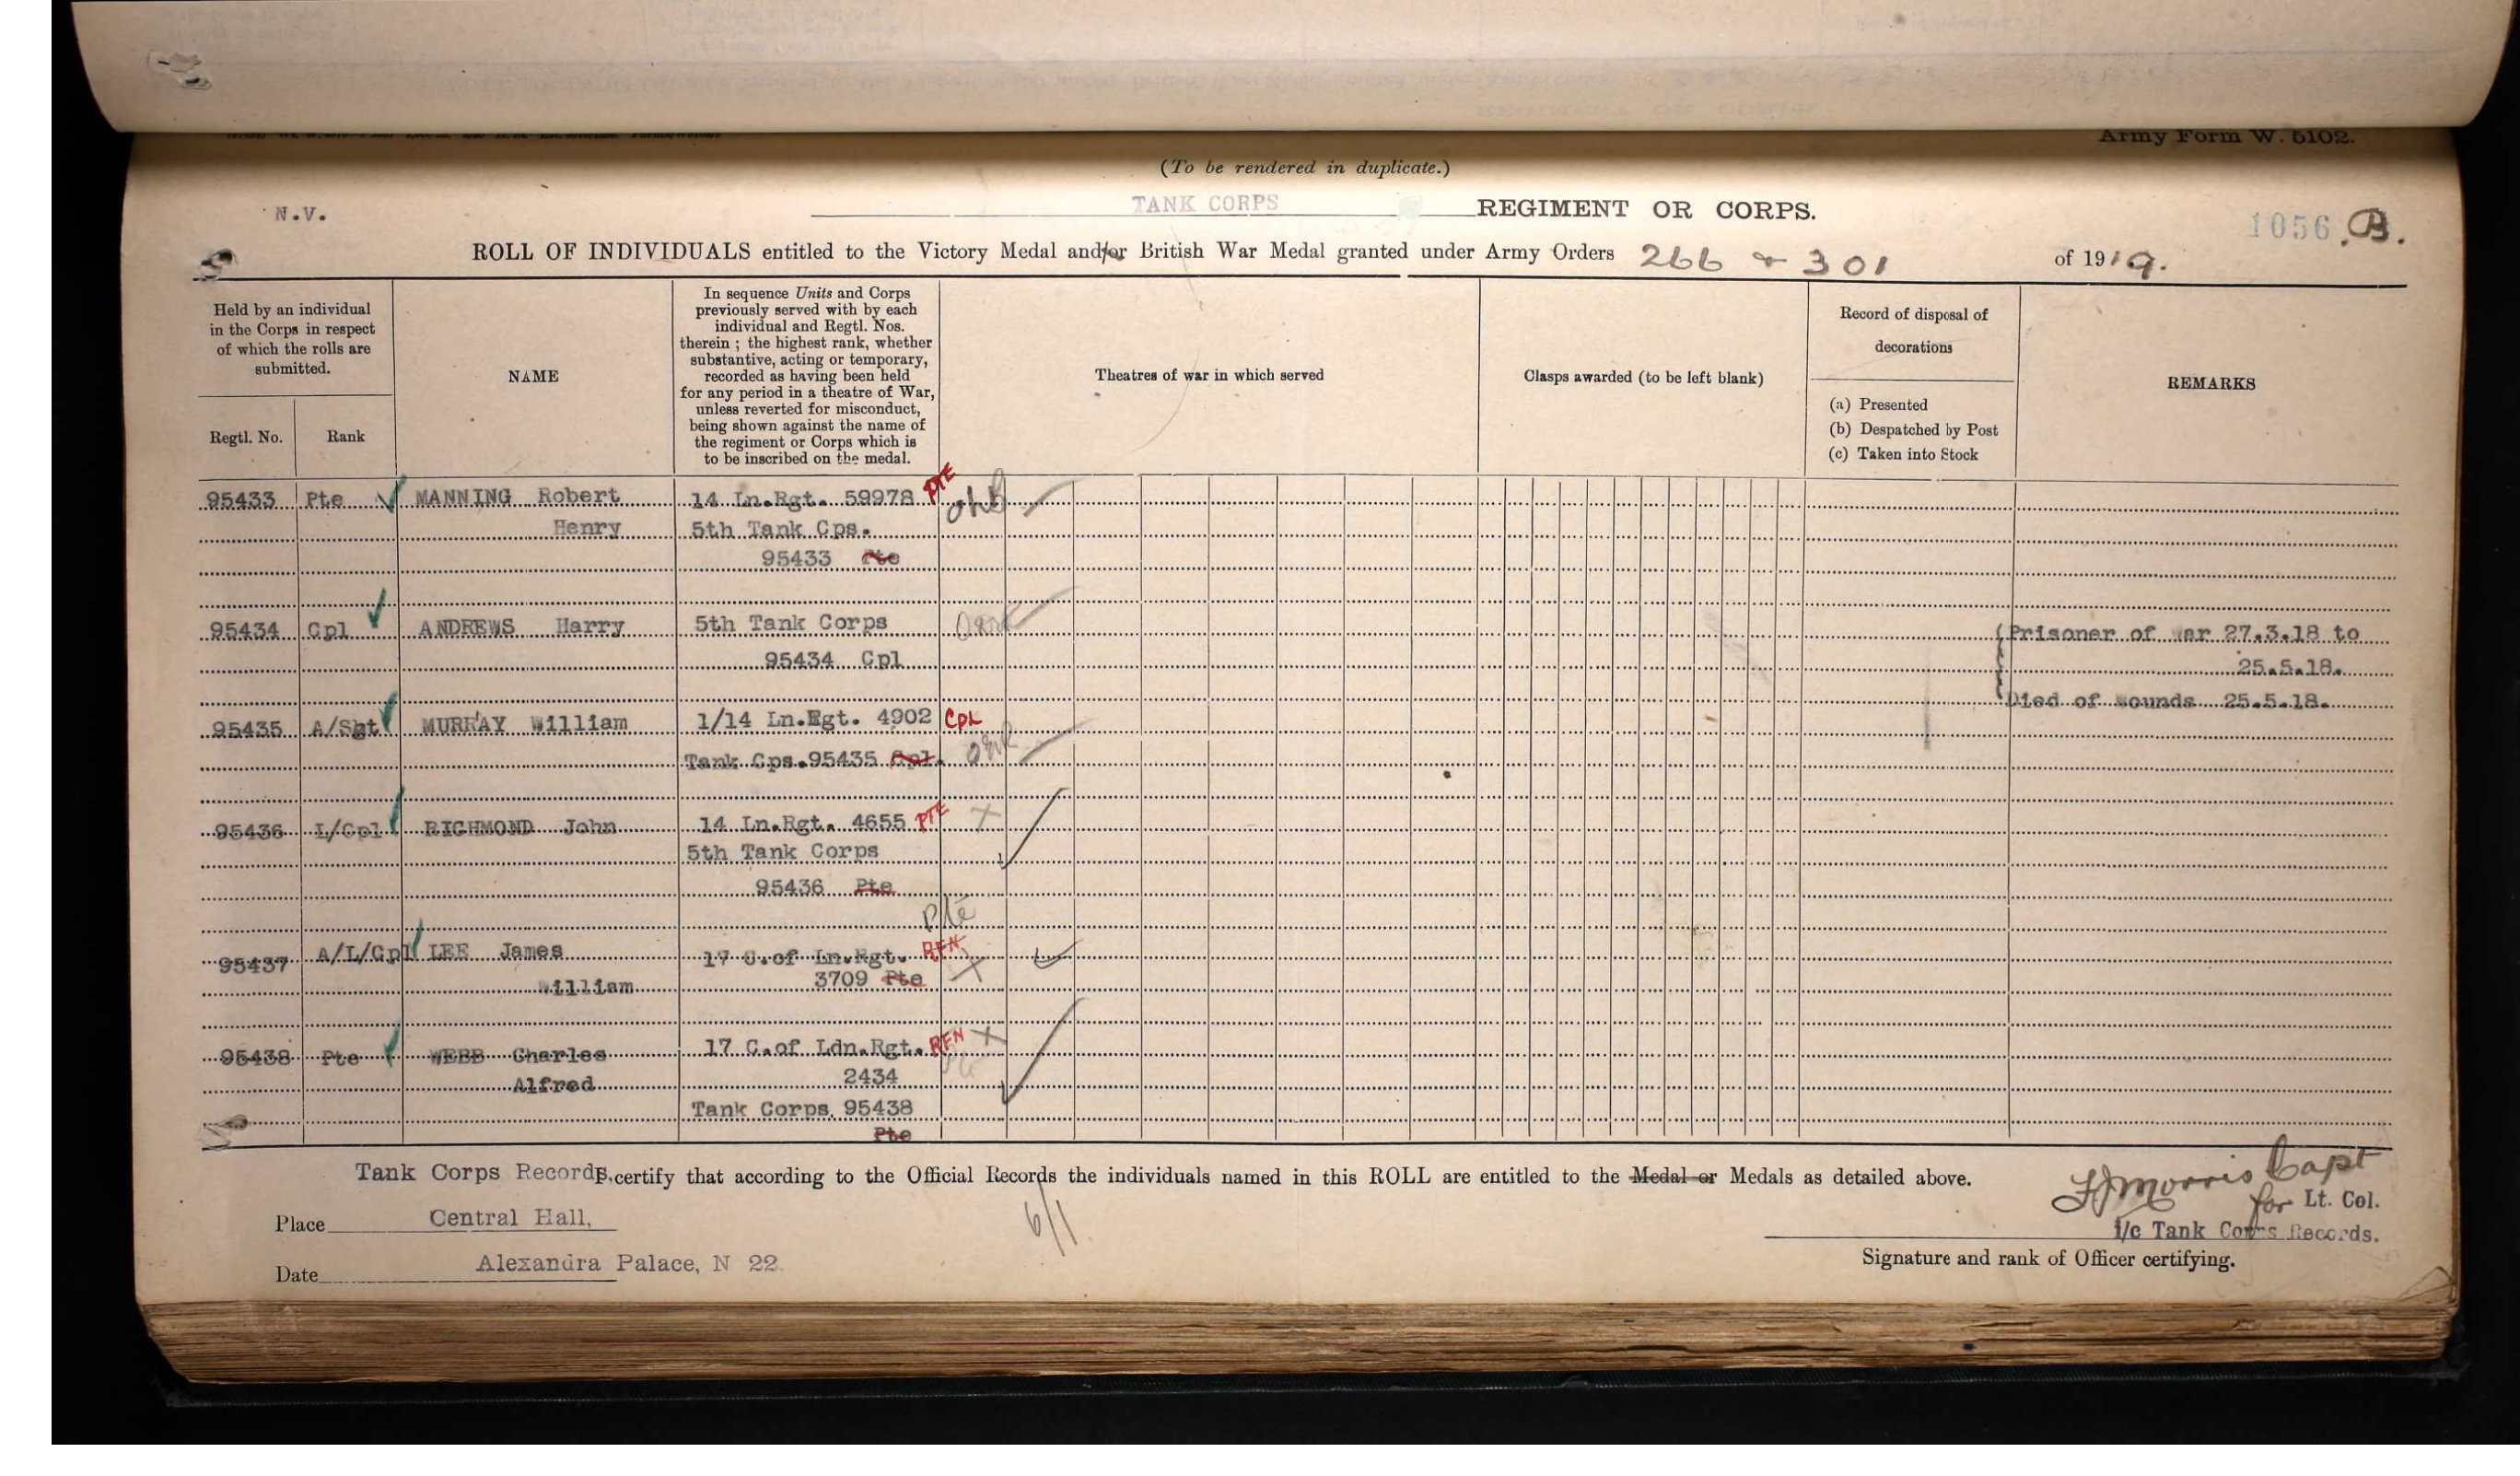 Army Form W. 5102.
(To be rendered in duplicate.)
N.V.
TANK CORPS REGIMENT OR CORPS.
1056 B.
ROLL OF INDIVIDUALS entitled to the Victory Medal and/or British War Medal granted under Army Orders 266 & 301 of 1919.
Held by an individual
in the Corps in respect
of which the rolls are
submitted.
Regtl. No.
Rank
NAME
In sequence Units and Corps
previously served with by each
individual and Regtl. Nos.
therein ; the highest rank, whether
substantive, acting or temporary,
recorded as having been held
for any period in a theatre of War,
unless reverted for misconduct,
being shown against the name of
the regiment or Corps which is
to be inscribed on the medal.
Theatres of war in which served
Clasps awarded (to be left blank)
Record of disposal of
decorations
(a) Presented
(b) Despatched by Post
(c) Taken into Stock
REMARKS
95433 Pte MANNING Robert 14 Ln.Rgt. 59978 PTE
Henry 5th Tank Cps.
95433 Pte
95434 Cpl ANDREWS Harry 5th Tank Corps Prisoner of War 27.3.18 to
95434 Cpl 25.5.18.
Died of wounds 25.5.18.
95435 A/Sgt MURRAY William 1/14 Ln.Rgt. 4902 CPL
Tank Cps.95435 Cpl.
95436 L/Cpl RICHMOND John 14 Ln.Rgt. 4655 PTE X
5th Tank Corps
95436 Pte
Pte
95437 A/L/Cpl LEE James 17 C.of Ln.Rgt. RFN
William 3709 Pte X
95438 Pte WEBB Charles 17 C.of Ldn.Rgt. RFN X
Alfred 2434
Tank Corps. 95438
Pte
Tank Corps Records, certify that according to the Official Records the individuals named in this ROLL are entitled to the Medal or Medals as detailed above.
Morris Capt
for Lt. Col.
i/c Tank Corps Records.
Signature and rank of Officer certifying.
Place Central Hall,
6/1
Date Alexandra Palace, N 22.